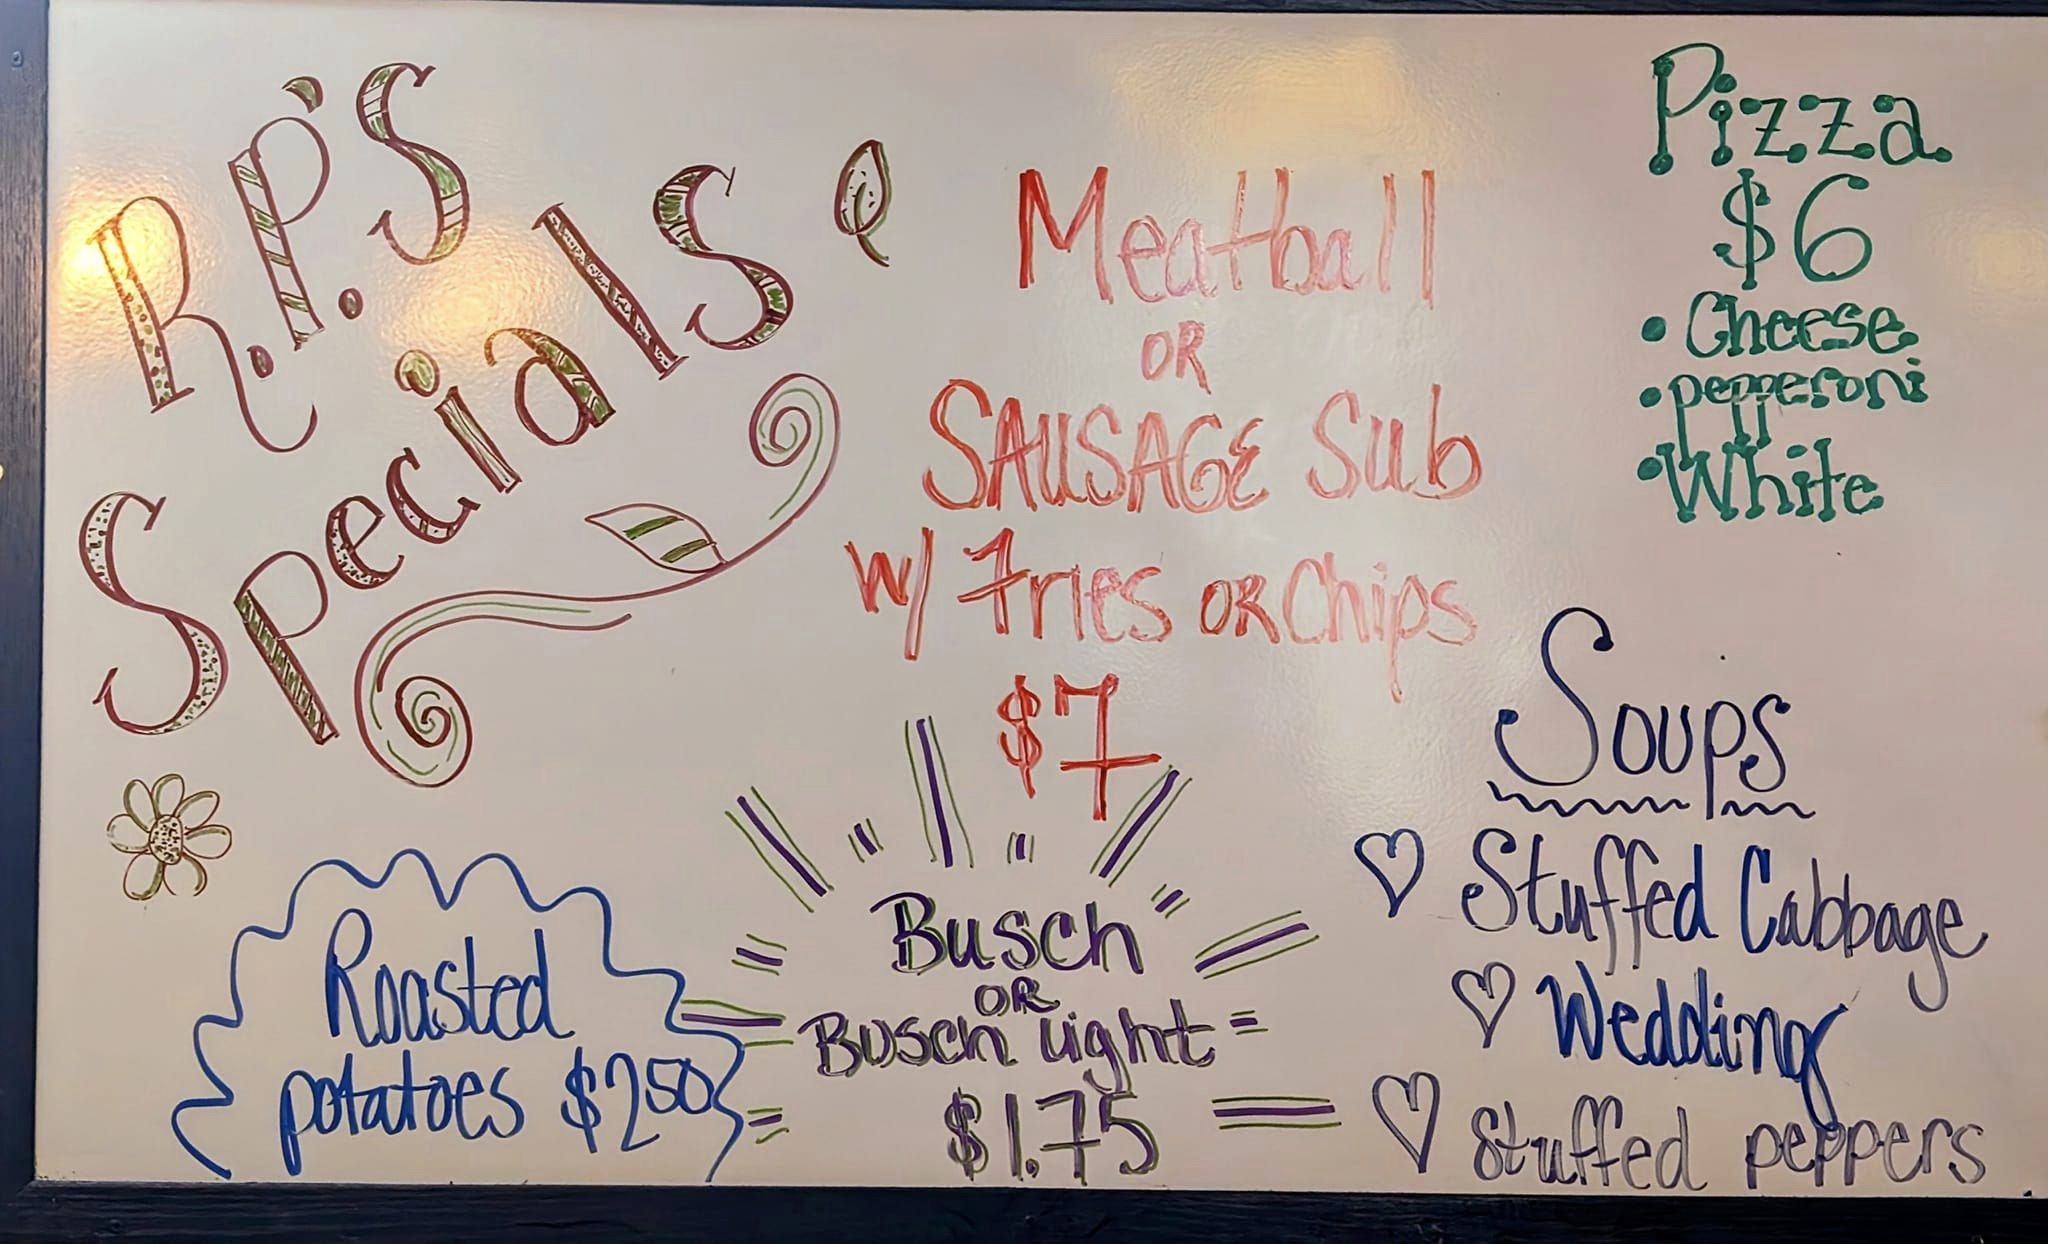 R.P.'S
Specials
Meatball
OR
SAUSAGE Sub
w/ Fries OR Chips
$7
Pizza
$6
• Cheese
• pepperoni
• White
Soups
Stuffed Cabbage
Wedding
Stuffed peppers
Roasted
potatoes $2.50
Busch
OR
Busch Light
$1.75